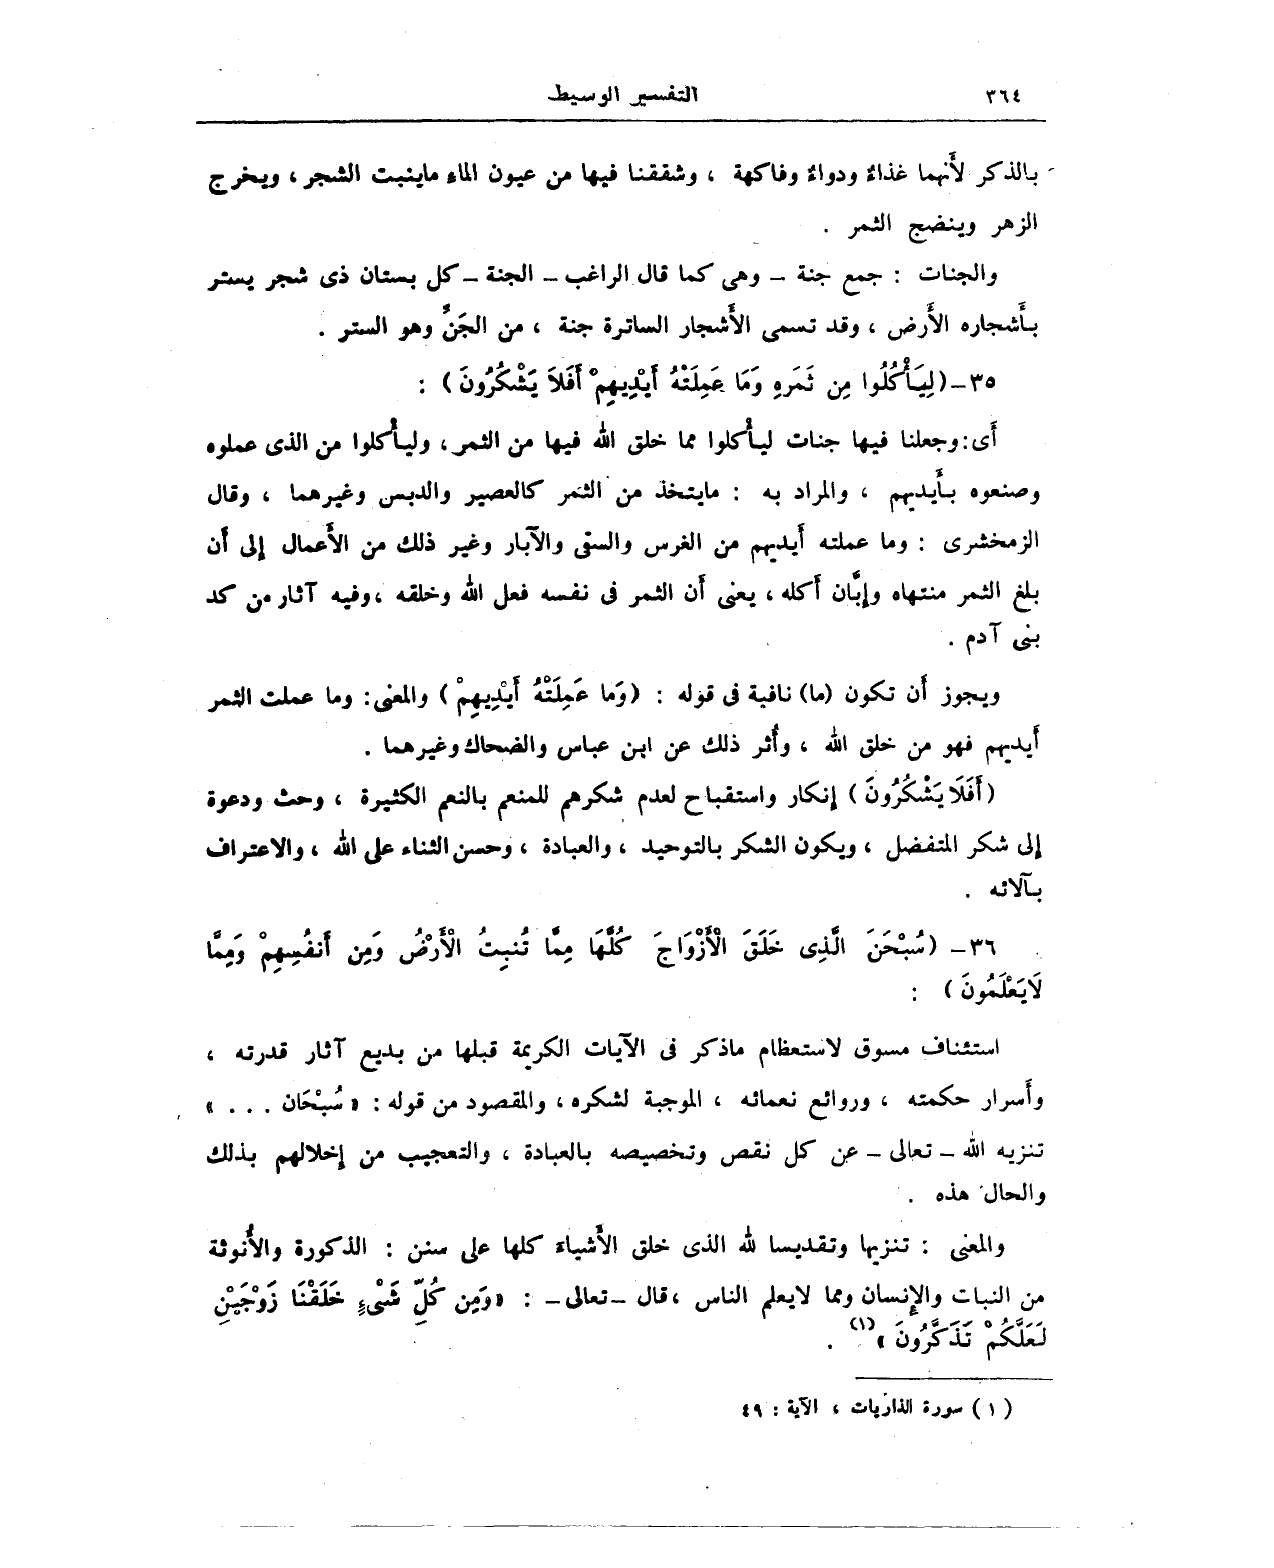 ٣٦٤
التفسير الوسيط
بالذكر لأَنهما غذاءُ ودواءُ وفاكهة ، وشققنا فيها من عيون الماء ماينبت الشجر ، ويخرج
الزهر وينضج الثمر .
والجنات : جمع جنة ـ وهى كما قال الراغب ـ الجنة ـ كل بستان ذى شجر يستر
بأَشجاره الأَرض ، وقد تسمى الأَشجار الساترة جنة ، من الجَنِّ وهو الستر .
٣٥ ـ (لِيَأْكُلُوا مِن ثَمَرِهِ وَمَا عَمِلَتْهُ أَيْدِيهِمْ أَفَلاَ يَشْكُرُونَ) :
أَى : وجعلنا فيها جنات ليأْكلوا مما خلق الله فيها من الثمر ، وليأْكلوا من الذى عملوه
وصنعوه بأَيديهم ، والمراد به : مايتخذ من الثمر كالعصير والدبس وغيرهما ، وقال
الزمخشرى : وما عملته أَيديهم من الغرس والسقى والآبار وغير ذلك من الأَعمال إلى أن
بلغ الثمر منتهاه وإبَّان أكله ، يعنى أن الثمر فى نفسه فعل الله وخلقه ، وفيه آثار من كد
بنى آدم .
ويجوز أَن تكون (ما) نافية فى قوله : (وَما عَمِلَتْهُ أَيْدِيهِمْ) والمعنى : وما عملت الثمر
أَيديهم فهو من خلق الله ، وأُثر ذلك عن ابن عباس والضحاك وغيرهما .
(أَفَلَا يَشْكُرُونَ) إنكار واستقباح لعدم شكرهم للمنعم بالنعم الكثيرة ، وحث ودعوة
إلى شكر المتفضل ، ويكون الشكر بالتوحيد ، والعبادة ، وحسن الثناء على الله ، والاعتراف
بآلائه .
٣٦ ـ (سُبْحَنَ الَّذِى خَلَقَ الْأَزْوَاجَ كُلَّهَا مِمَّا تُنبِتُ الْأَرْضُ وَمِن أَنفُسِهِمْ وَمِمَّا
لَايَعْلَمُونَ) :
استئناف مسوق لاستعظام ماذكر فى الآيات الكريمة قبلها من بديع آثار قدرته ،
وأَسرار حكمته ، وروائع نعمائه ، الموجبة لشكره ، والمقصود من قوله : « سُبْحَان . . . »
تنزيه الله ـ تعالى ـ عن كل نقص وتخصيصه بالعبادة ، والتعجيب من إخلالهم بذلك
والحال هذه .
والمعنى : تنزيها وتقديسا لله الذى خلق الأَشياء كلها على سنن : الذكورة والأُنوثة
من النبات والإِنسان ومما لايعلم الناس ، قال ـ تعالى ـ : «وَمِن كُلِّ شَىْءٍ خَلَقْنَا زَوْجَيْنِ
لَعَلَّكُمْ تَذَكَّرُونَ » (١) .
(١) سورة الذاريات ، الآية : ٤٩